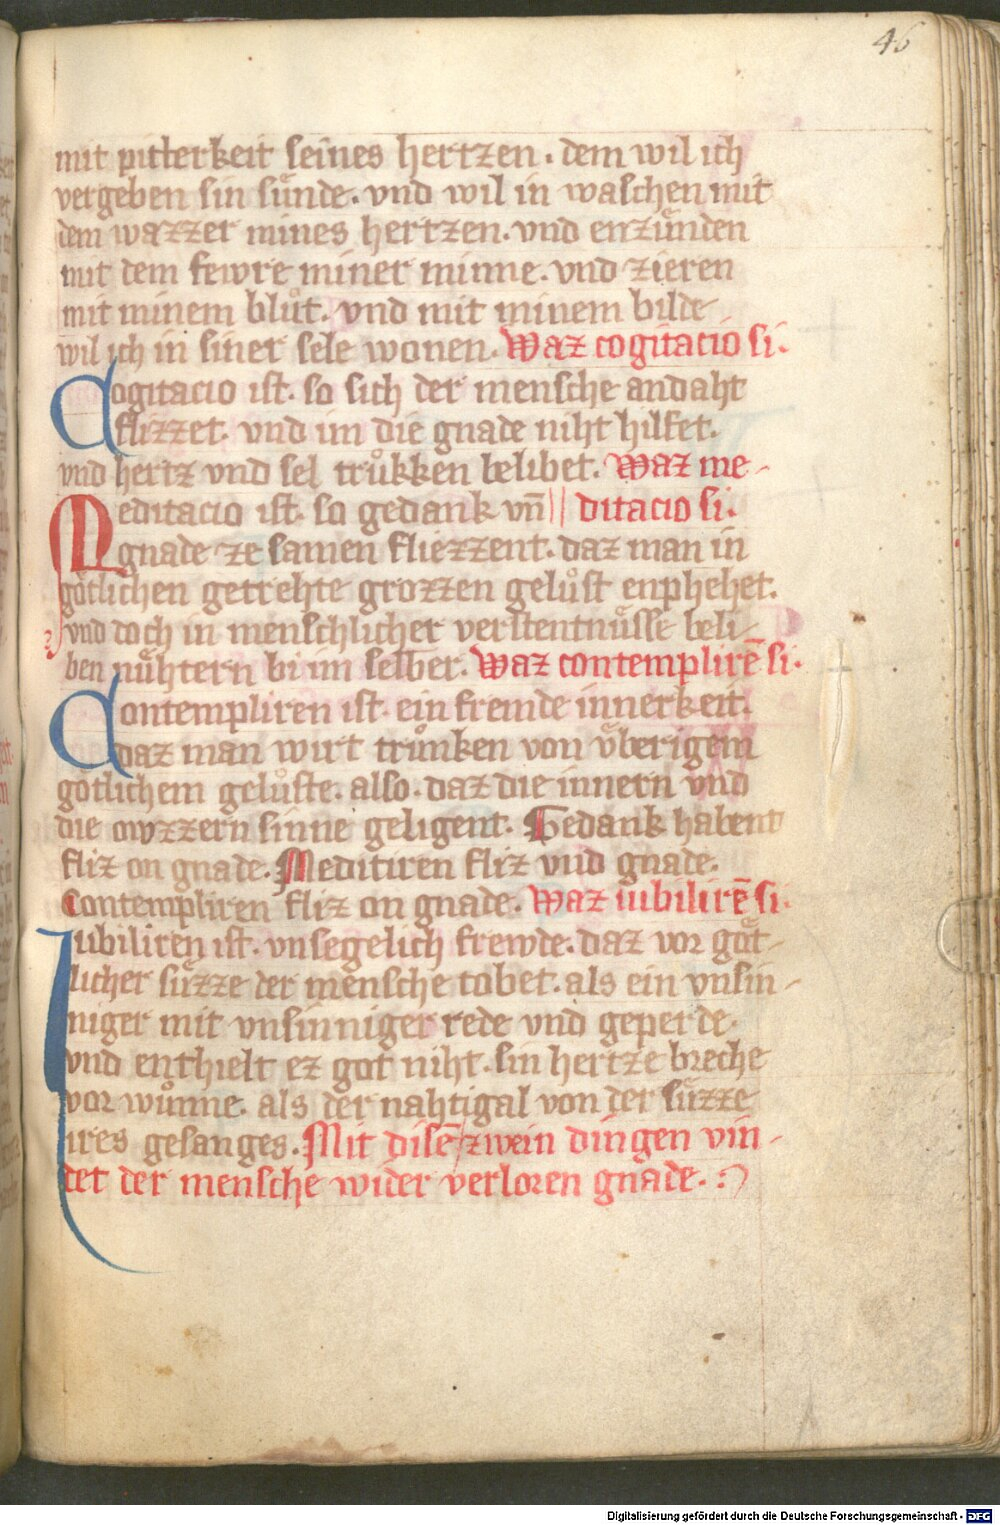 46
mit pitterkeit seines hertzen. dem wil ich
vergeben sin suͤnde. vnd wil in waschen mit
dem wazzer mines hertzen. vnd enzuͤnden
mit dem fewre miner minne. vnd zieren
mit minem bluͦt. vnd mit minem bilde
wil ich in siner sele wonen. Waz cogitacio si.
Cogitacio ist. so sich der mensche andaht
flizzet. vnd im die gnade niht hilfet.
vnd hertz vnd sel truͦkken belibet. Waz me-
Meditacio ist. so gedank vn̄ || ditacio si.
gnade ze samen fliezzent. daz man in
goͤtlichen getrehte grozzen geluͦst enphehet.
vnd doch in menschlicher verstentnuͤsse beli-
ben nuͤhtern bi im selber. Waz contemplirē si.
Contempliren ist. ein fremde innerkeit.
daz man wirt trunken von vͤberigem
goͤtlichem geluͦste. also. daz die innern vnd
die owzzern sinne geligent. Gedank habent
fliz on gnade. Meditiren fliz vnd gnade.
Contempliren fliz on gnade. Waz iubilirē si.
Iubiliren ist. vnsegelich frewde. daz vor goͤt-
licher suͤzze der mensche tobet. als ein vnsin-
niger mit vnsinniger rede vnd geperde.
vnd enthielt ez got niht. sin hertze breche
vor wuͦnne. als der nahtigal von der suͤzze
ires gesanges. Mit disē zwein dingen vin-
det der mensche wider verloren gnade. :)
Digitalisierung gefördert durch die Deutsche Forschungsgemeinschaft - DFG